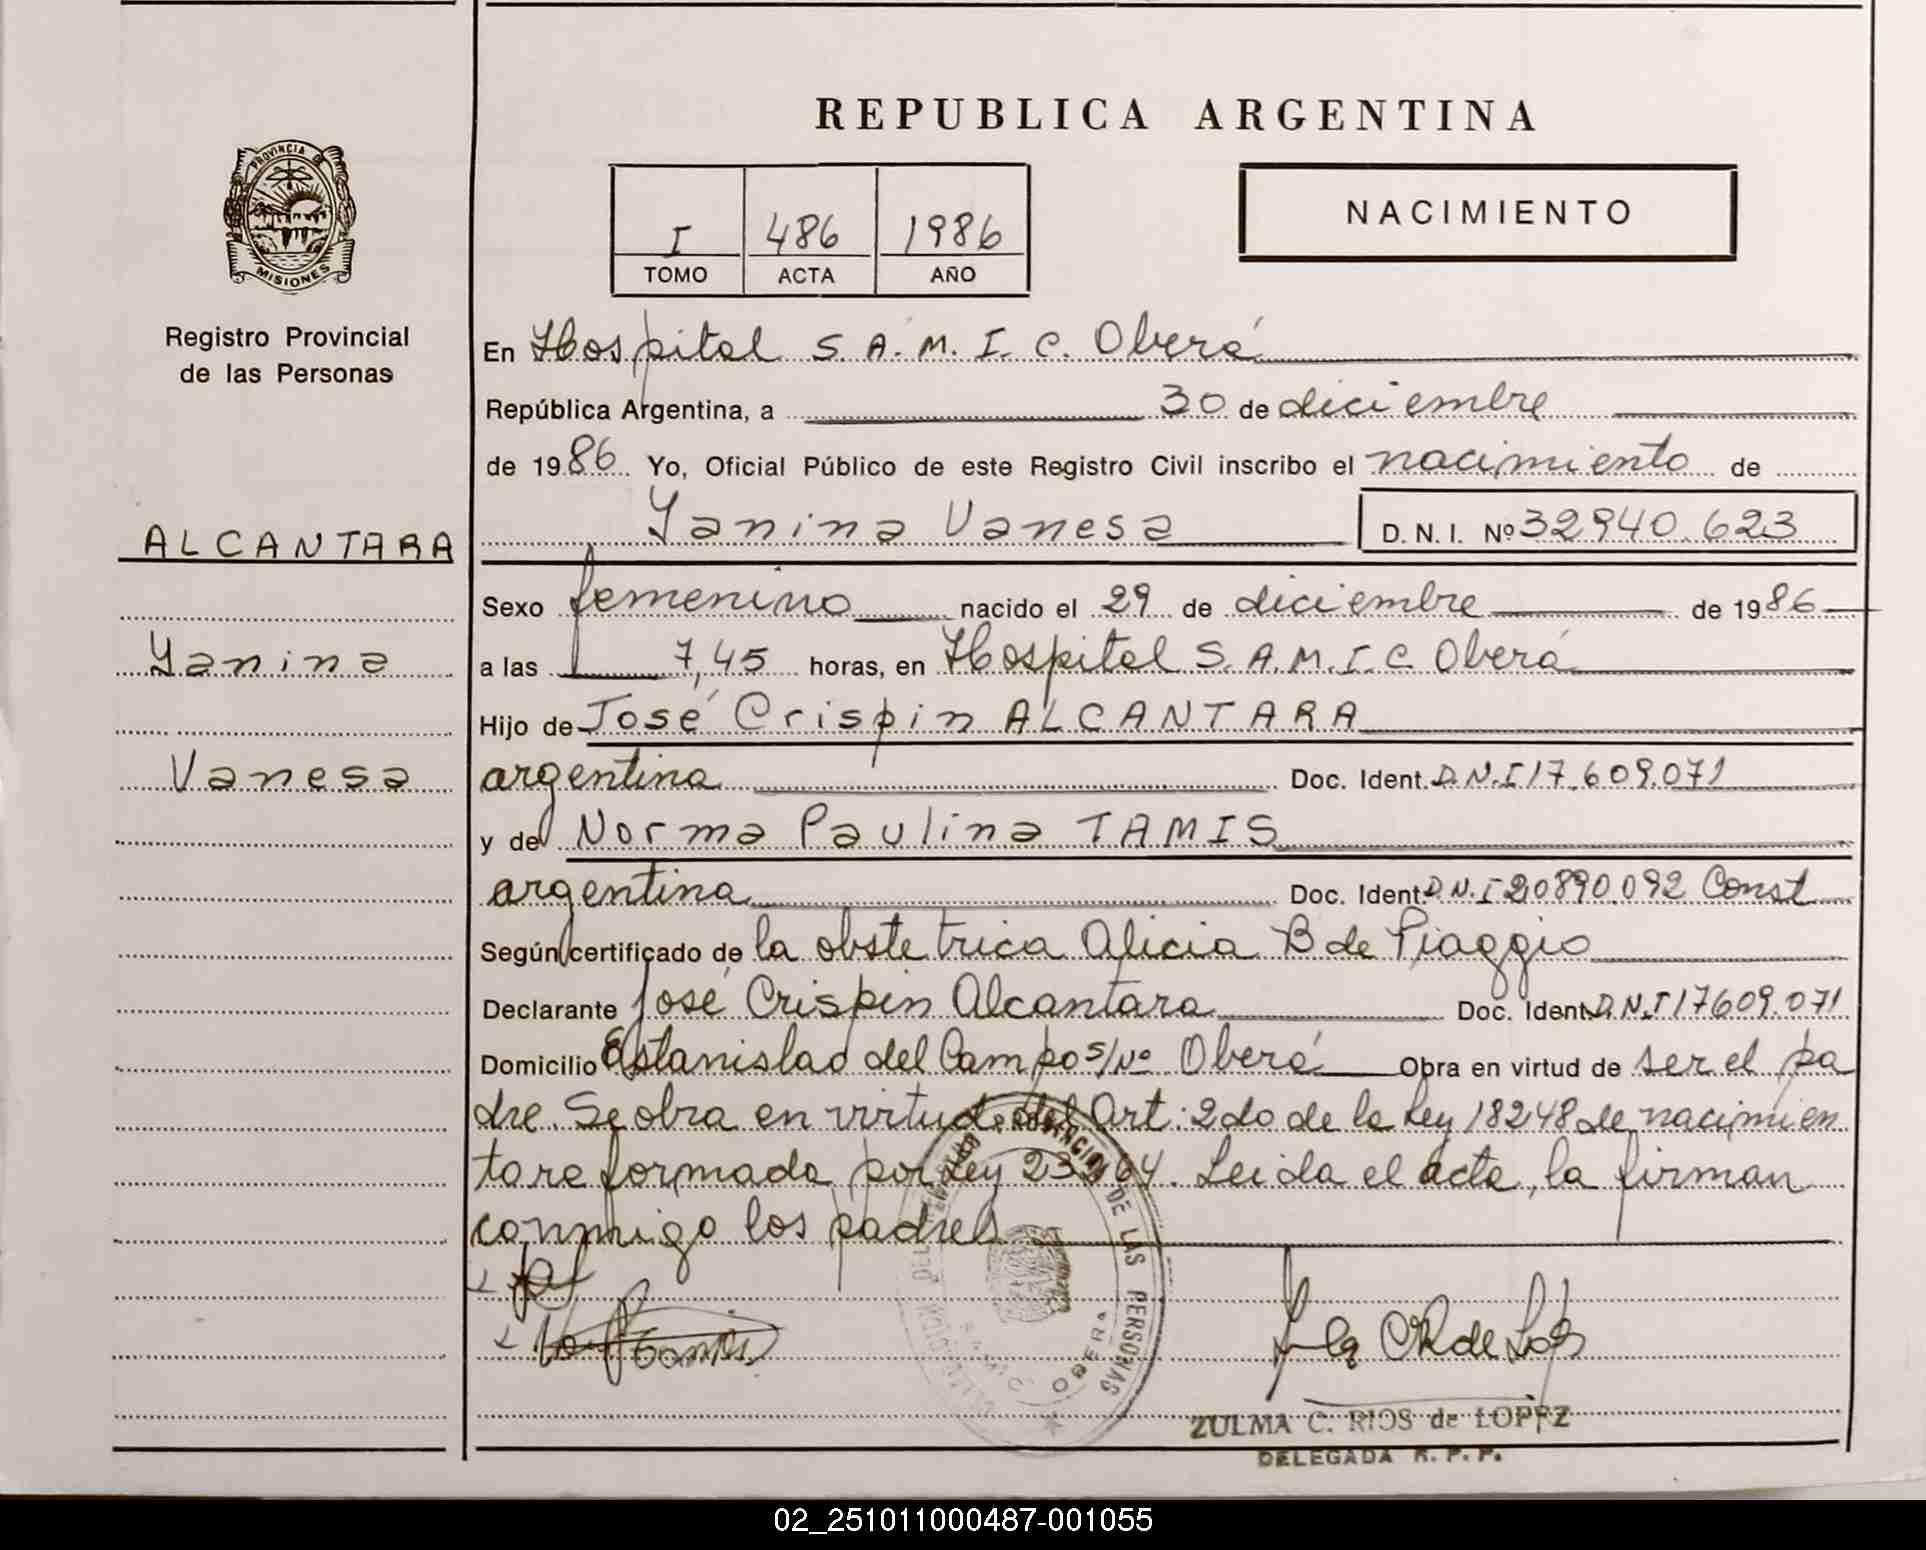 REPUBLICA ARGENTINA
PROVINCIA DE
MISIONES
Registro Provincial
de las Personas
I 486 1986
TOMO ACTA AÑO
NACIMIENTO
En Hospital S. A. M. I. C. Oberá
República Argentina, a 30 de diciembre
de 1986 Yo, Oficial Público de este Registro Civil inscribo el nacimiento de
Yanina Vanesa D. N. I. Nº 32940.623
ALCANTARA
Yanina
Vanesa
Sexo femenino nacido el 29 de diciembre de 1986
a las 7,45 horas, en Hospital S. A. M. I. C. Oberá
Hijo de José Crispin ALCANTARA
argentina Doc. Ident. D.N.I 17.609.071
y de Norma Paulina TAMIS
argentina Doc. Ident. D.N.I 20890.092 Const
Según certificado de la obstetrica Alicia B de Piaggio
Declarante José Crispin Alcantara Doc. Ident. D.N.I 17609.071
Domicilio Estanislao del Campo s/Nº Oberá Obra en virtud de ser el pa
dre. Se obra en virtud del Art: 2do de la Ley 18248 de nacimien
to reformada por Ley 23264. Leida el acta, la firman
conmigo los padres
PROVINCIAL DE LAS PERSONAS
OBERA
ZULMA C. RIOS de LOPEZ
DELEGADA R. P. P.
02_251011000487-001055